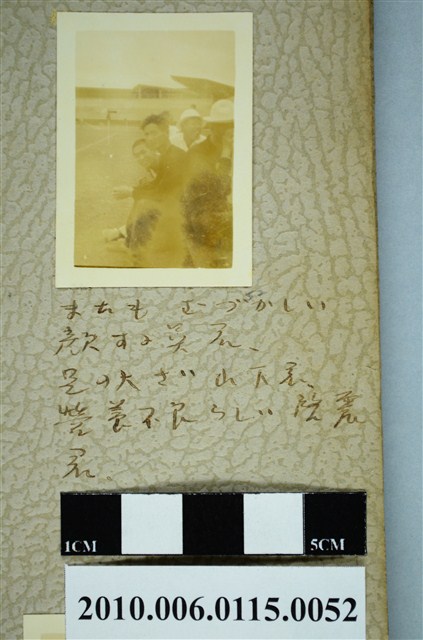 まちも むづかしい
顔する 吳 君、
足の大ざ 山下君、
營養不良らしい 陳
君、
1CM 5CM
2010.006.0115.0052